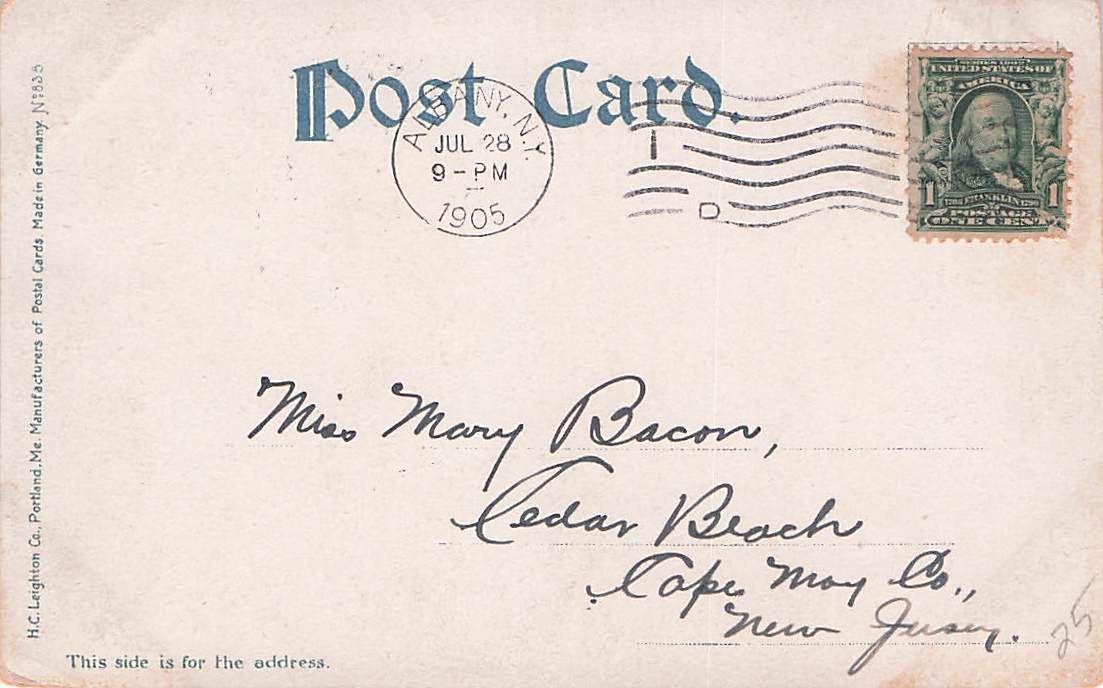 Post Card.
ALBANY, N.Y.
JUL 28
9-PM
1905
D
SERIES 1902
UNITED STATES OF
AMERICA
1 1706 FRANKLIN 1790 1
POSTAGE
ONE CENT
Miss Mary Bacon,
Cedar Beach
Cape May Co.,
New Jersey.
25
This side is for the address.
H.C. Leighton Co., Portland, Me. Manufacturers of Postal Cards. Made in Germany. No 835